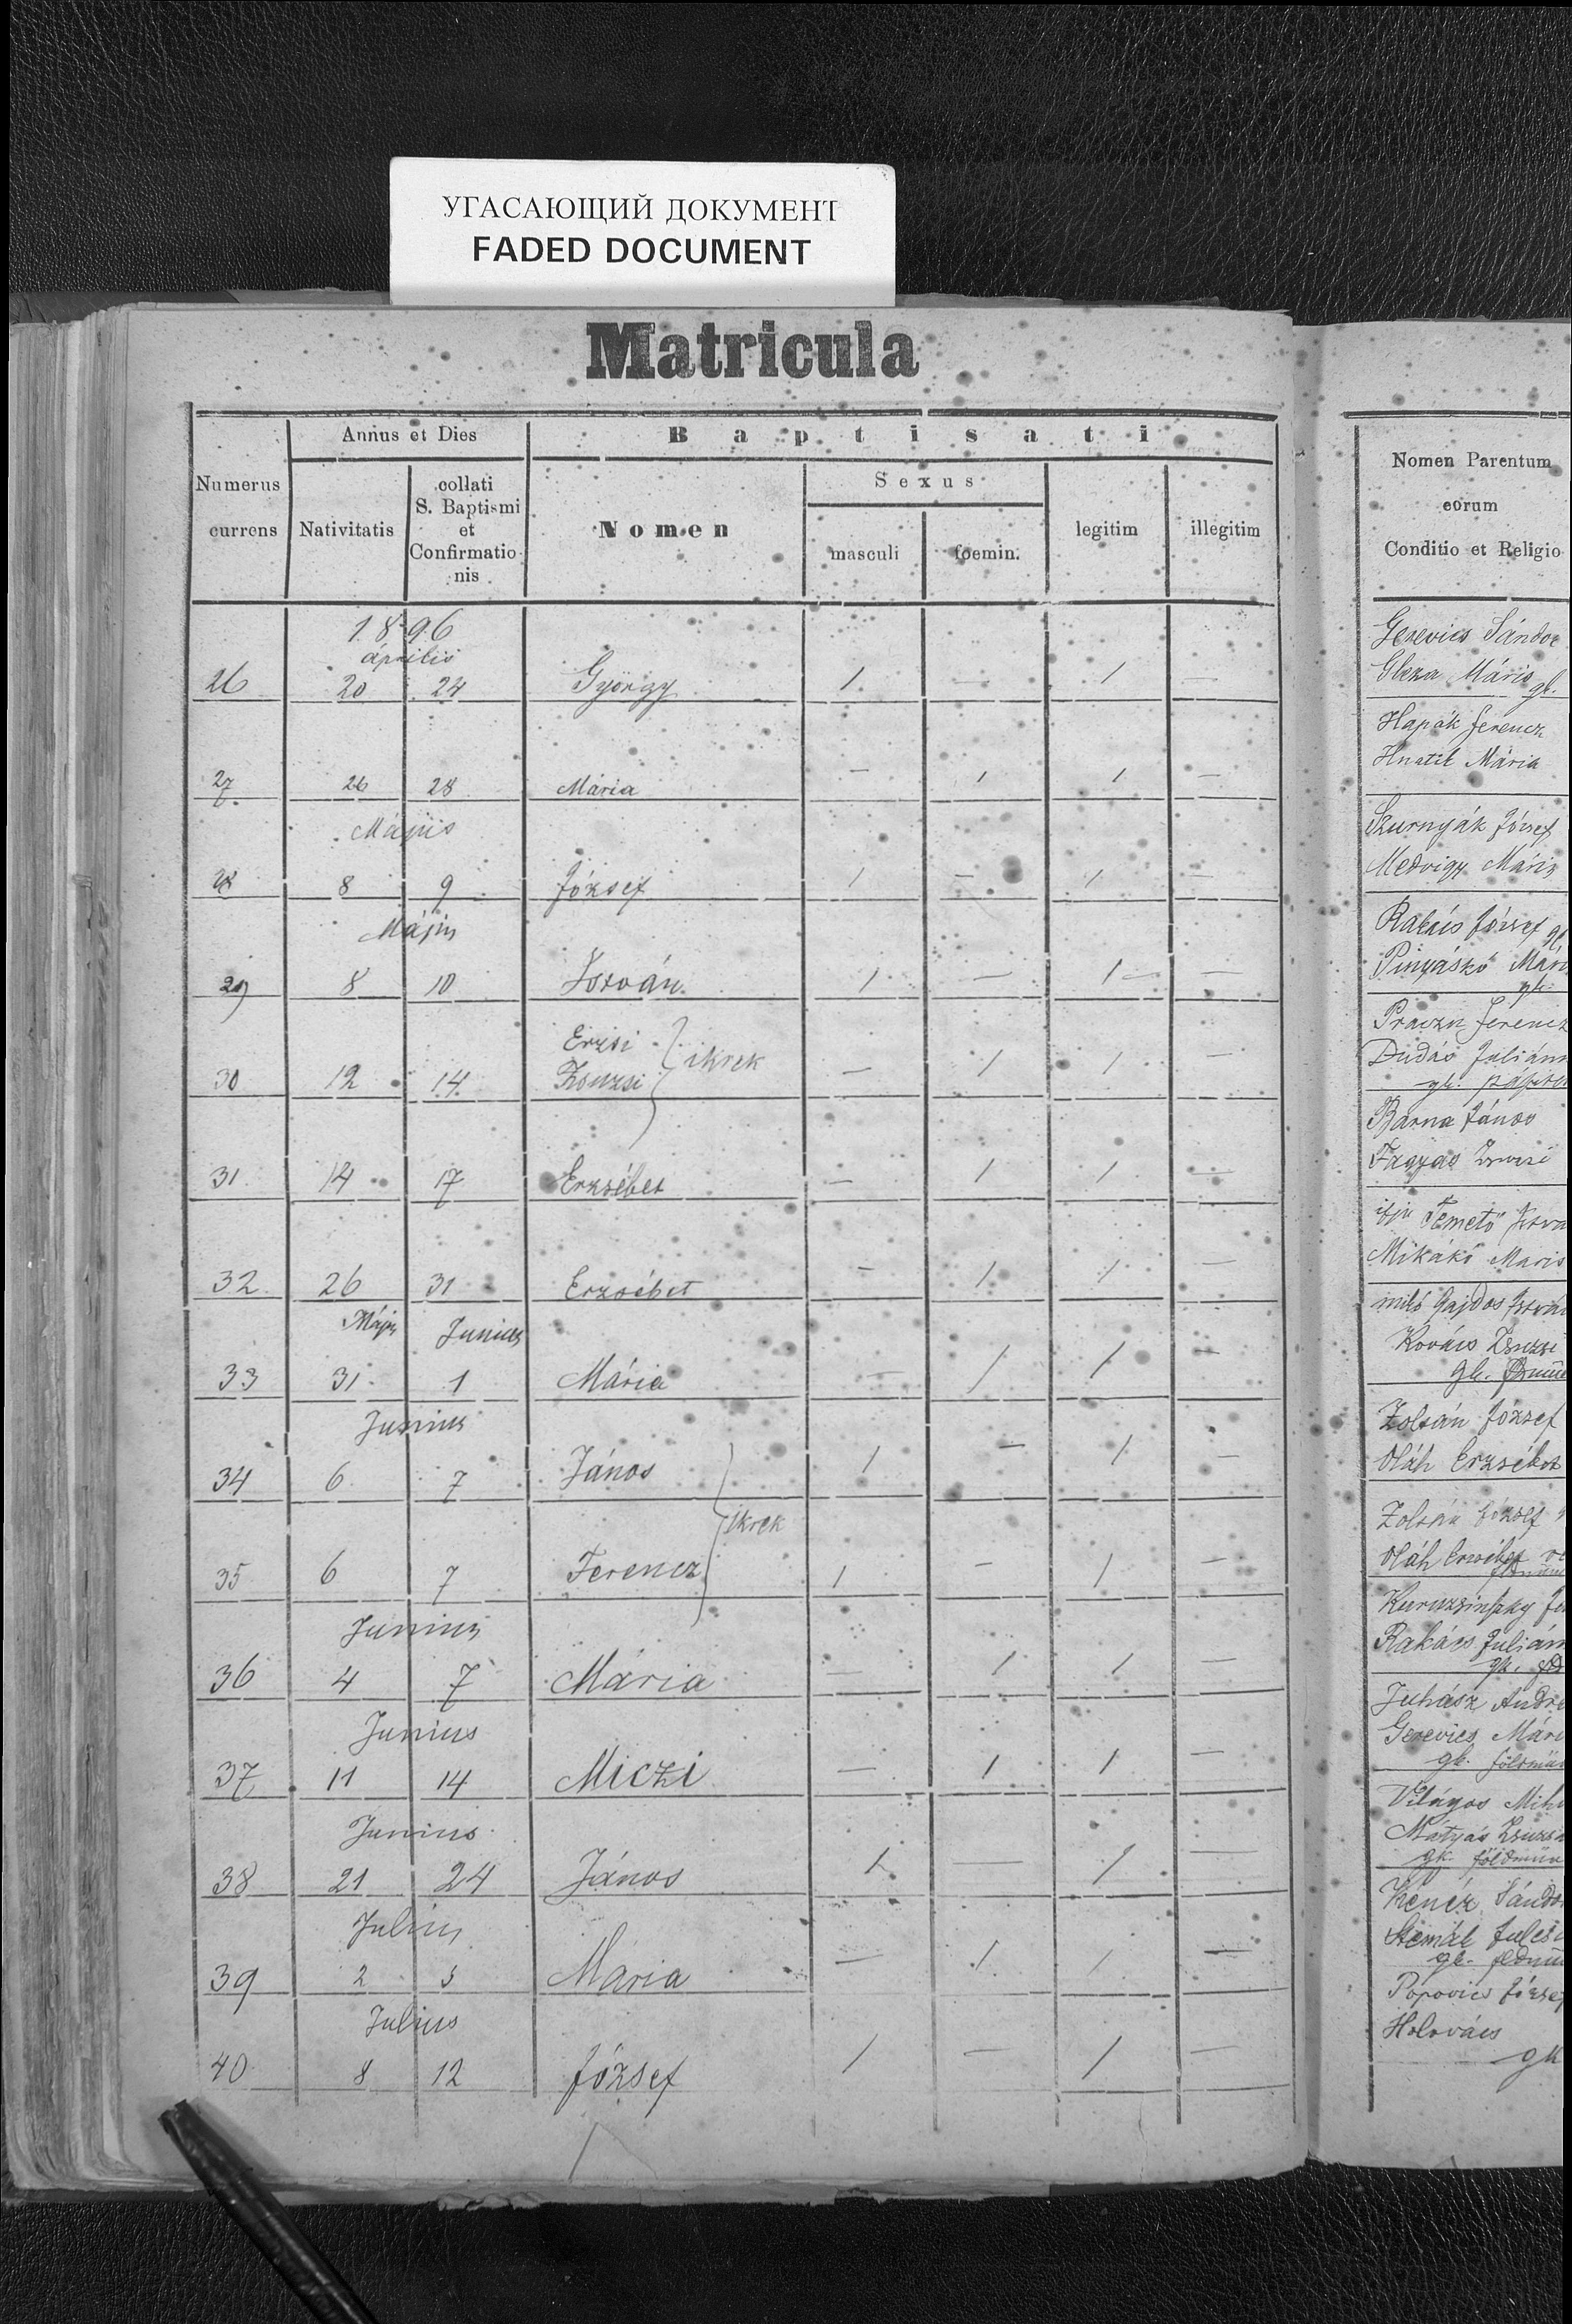 УГАСАЮЩИЙ ДОКУМЕНТ
FADED DOCUMENT
Matricula
Annus et Dies
Baptisati
Numerus currens
Nativitatis
collati S. Baptismi et Confirmationis
Nomen
Sexus
masculi
foemin.
legitim
illegitim
Nomen Parentum
eorum
Conditio et Religio
1896
április
26 20 24 György 1 — 1 —
Gerevics Sándor
Gleza Máris gk.
27. 26 28 Mária — 1 1 —
Hapák Ferencz
Hnatik Mária
Május
28 8 9 József 1 — 1 —
Szurnyák József
Medvigy Máris
Május
29 8 10 István 1 — 1 —
Rakács József gk.
Pinyáskó
gk.
30 12 14 Erzsi Zsuzsi ikrek — 1 1 —
Ferencz
Dudás
gk.
31 14 17 Erzsébet — 1 1 —
Barna János
32 26 31 Erzsébet — 1 1 —
ifju Temető
Mikákó Maris
Május Junius
33 31 1 Mária — 1 1 —
Gajdos
Kovács Zsuzsi
gk.
Junius
34 6 7 János 1 — 1 —
ikrek
Zolsán József
Oláh Erzsébet
35 6 7 Ferencz 1 — 1 —
Zolsán József
Oláh Erzsébet
Junius
36 4 7 Mária — 1 1 —
Rakács
gk.
Junius
37 11 14 Miczi — 1 1 —
Juhász
Gerevics
gk.
Junius
38 21 24 János 1 — 1 —
Világos
Mátyás
gk.
Julius
39 2 5 Mária — 1 1 —
Kenéz
gk.
Julius
40 8 12 József 1 — 1 —
Popovics József
Holovács
gk